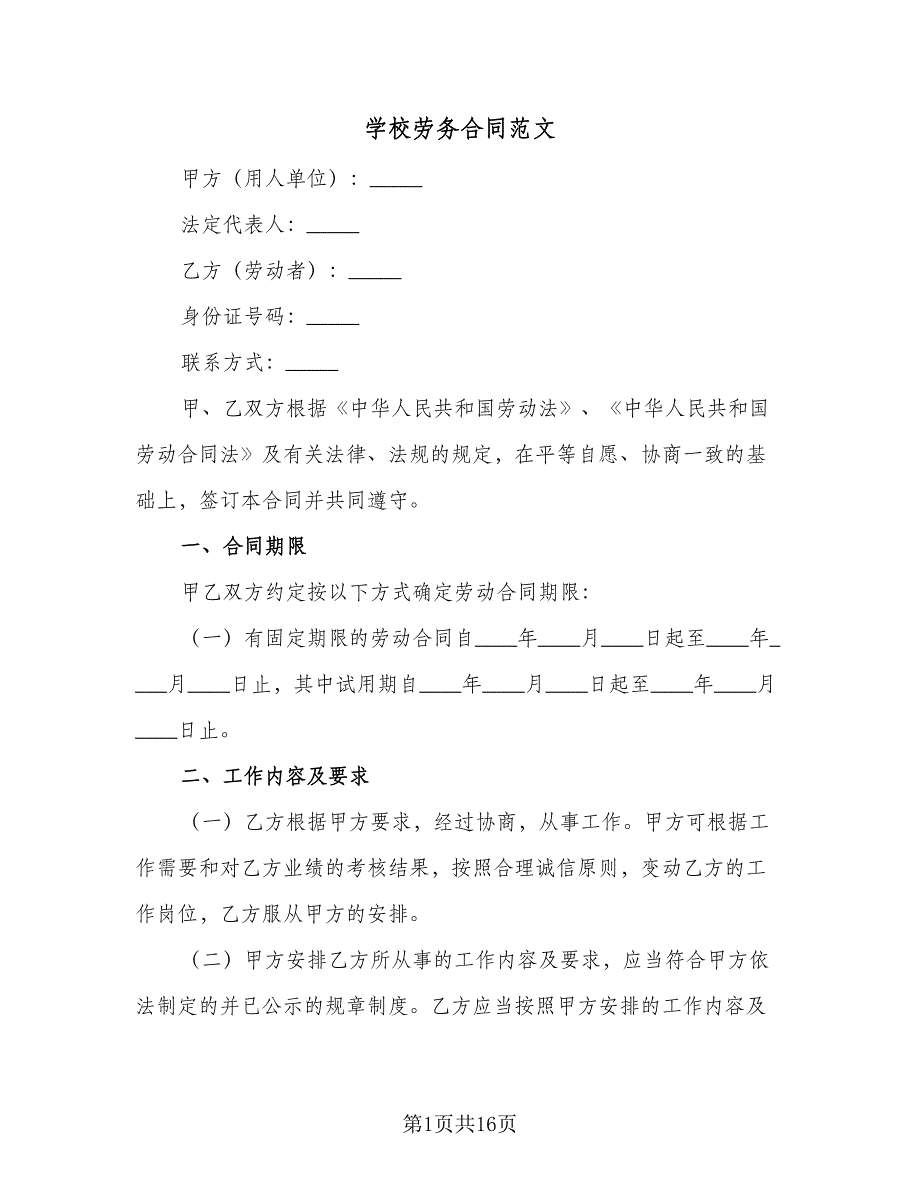 学校劳务合同范文
甲方（用人单位）：_____
法定代表人：_____
乙方（劳动者）：_____
身份证号码：_____
联系方式：_____
甲、乙双方根据《中华人民共和国劳动法》、《中华人民共和国
劳动合同法》及有关法律、法规的规定，在平等自愿、协商一致的基
础上，签订本合同并共同遵守。
一、合同期限
甲乙双方约定按以下方式确定劳动合同期限：
（一）有固定期限的劳动合同自____年____月____日起至____年_
___月____日止，其中试用期自____年____月____日起至____年____月
____日止。
二、工作内容及要求
（一）乙方根据甲方要求，经过协商，从事工作。甲方可根据工
作需要和对乙方业绩的考核结果，按照合理诚信原则，变动乙方的工
作岗位，乙方服从甲方的安排。
（二）甲方安排乙方所从事的工作内容及要求，应当符合甲方依
法制定的并已公示的规章制度。乙方应当按照甲方安排的工作内容及
第1页共16页